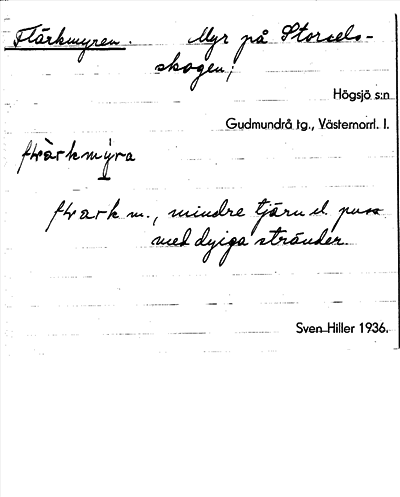 Flärkmyren. Myr på Storsels-
skogen;
Högsjö s:n
Gudmundrå tg., Västernorrl. l.
flärkmýra
flark m., mindre tjärn el. puss
med dyiga stränder.
Sven Hiller 1936.